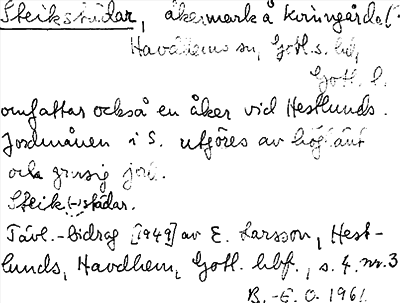 Steikstädar, åkermark å Kvinngårda (:
Havdhems sn, Gotl. s. hd,
Gotl. l.
omfattar också en åker vid Hestlunds.
Jordmånen i S. utgöres av höglänt
och grusig jord.
Steik(-)städar.
Tävl.-bidrag [1949] av E. Larsson, Hest-
lunds, Havdhem, Gotl. hbf., s. 4. nr. 3
B.-E. O. 1961